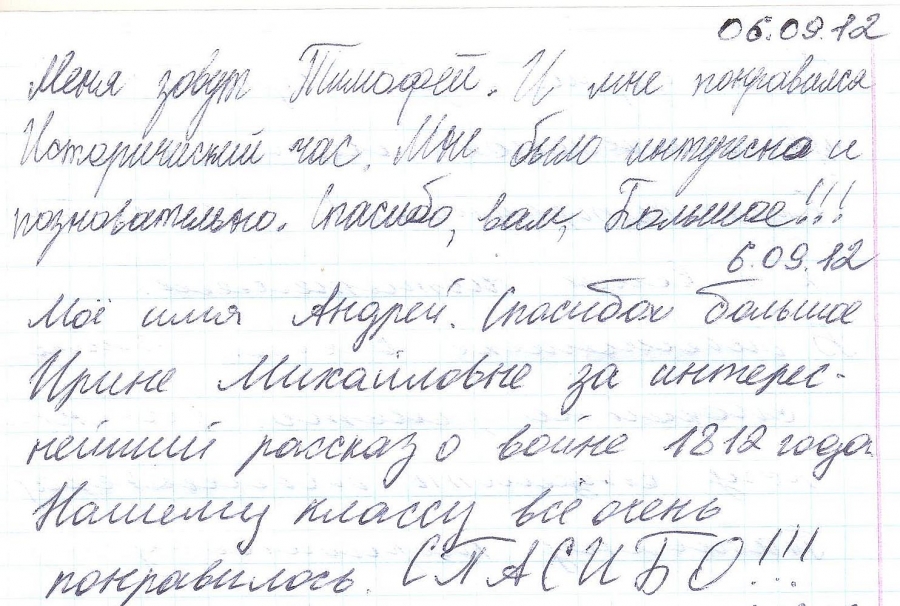 06.09.12
Меня зовут Тимофей. И мне понравился
Исторический час. Мне было интересно и
познавательно. Спасибо, вам, Большое!!!
6.09.12
Моё имя Андрей. Спасибо большое
Ирине Михайловне за интерес-
нейший рассказ о войне 1812 года.
Нашему классу всё очень
понравилось. СПАСИБО!!!